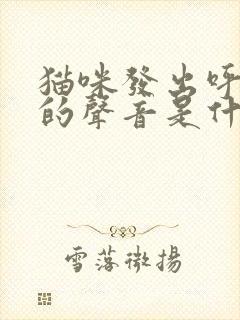 猫咪發出呼
的聲音是什
雪落微揚